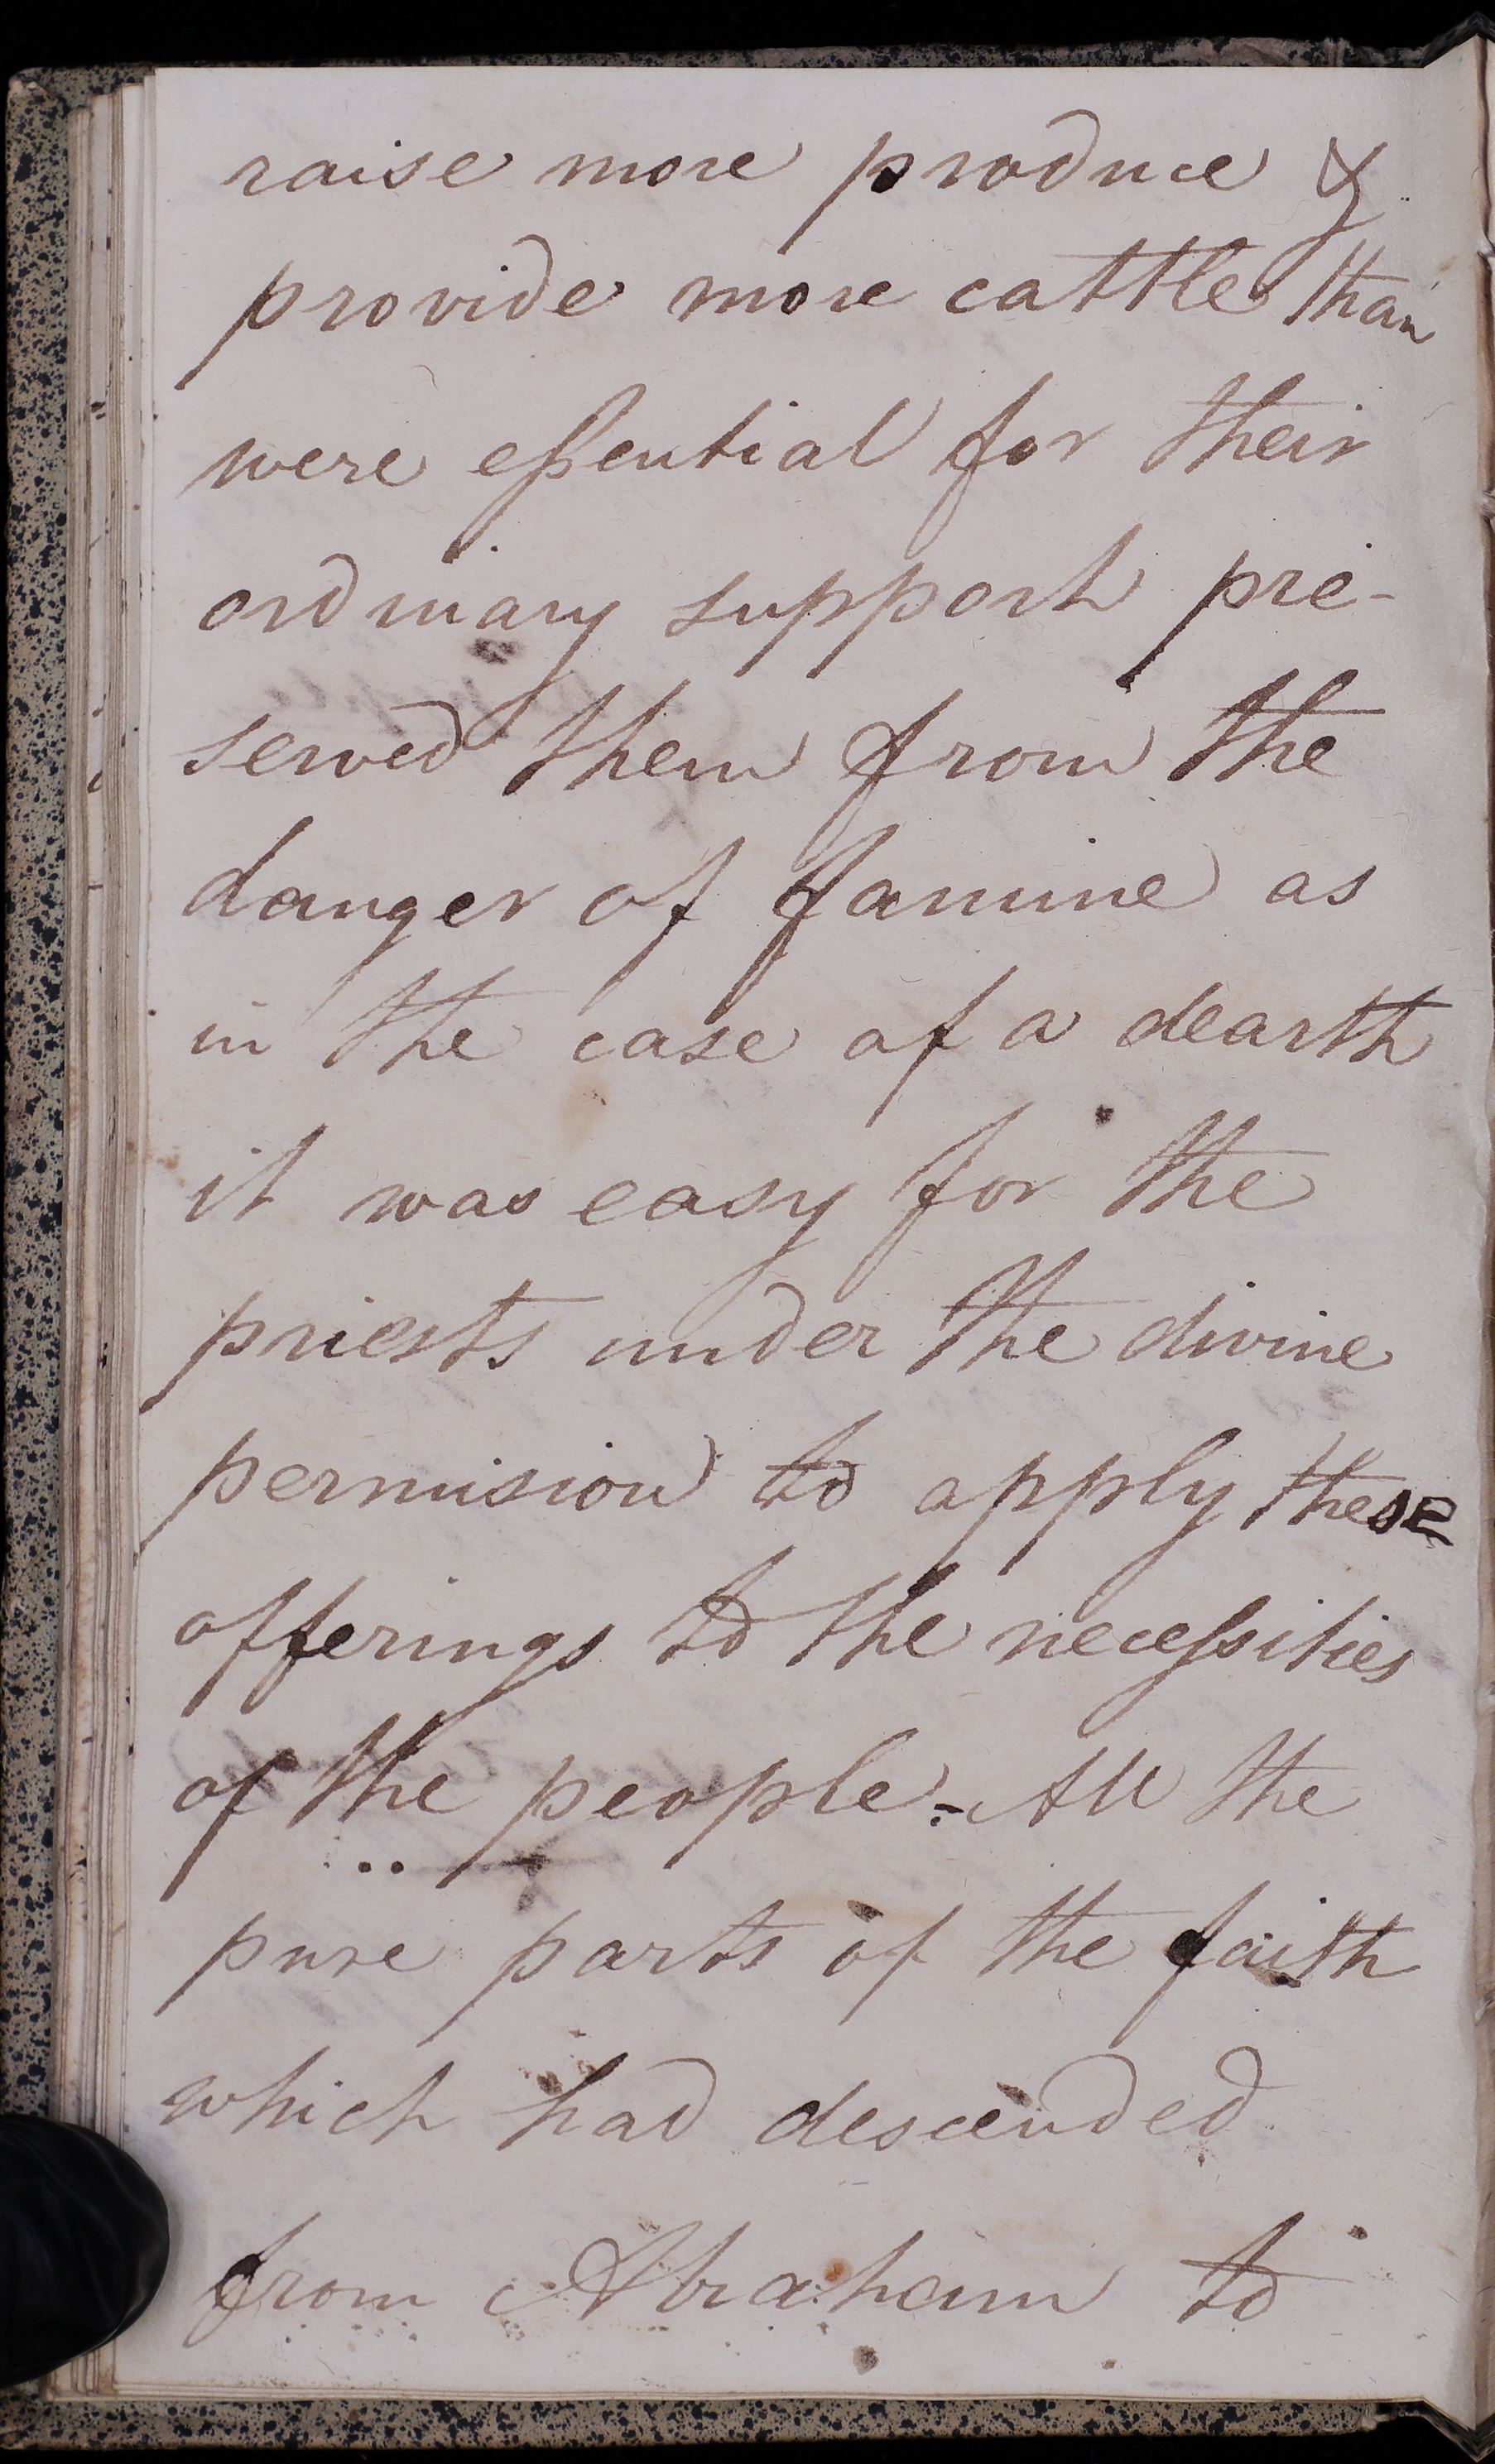 raise more produce &
provide more cattle than
were essential for their
ordinary support pre-
served them from the
danger of famine as
in the case of a dearth
it was easy for the
priests under the divine
permision to apply these
offerings to the necessities
of the people - All the
pure parts of the faith
which had descended
from Abraham to